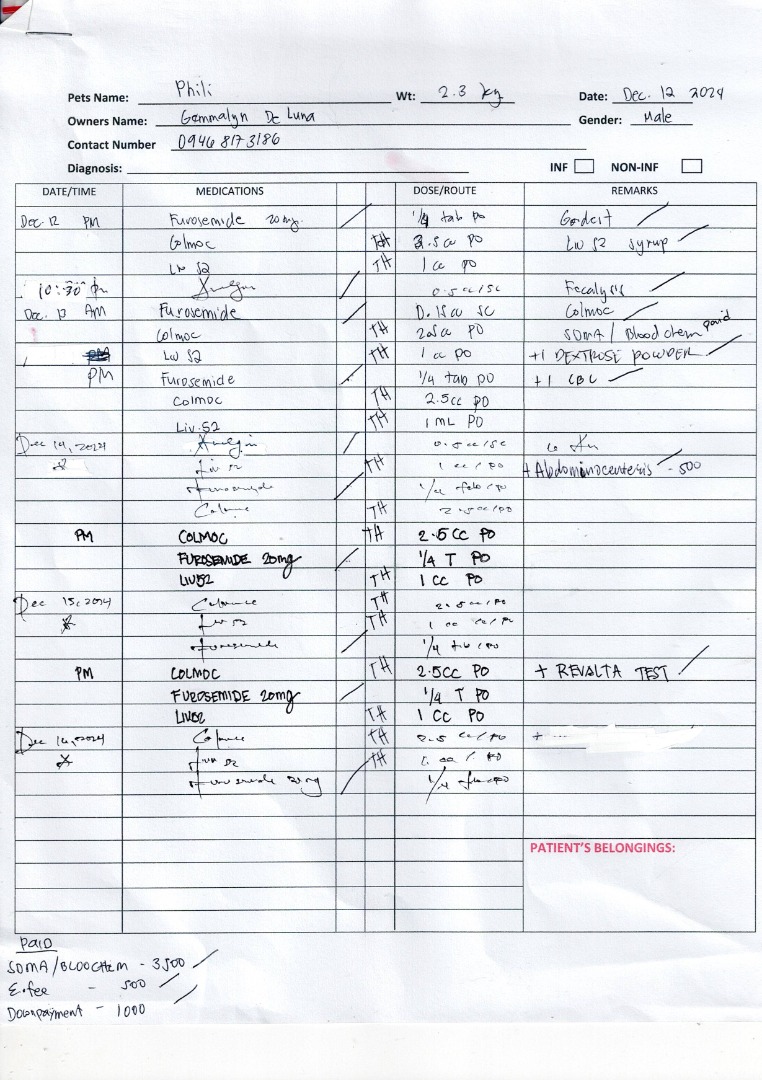 Pets Name: Phili Wt: 2.3 kg Date: Dec. 12 2024
Owners Name: Gemmalyn De Luna Gender: Male
Contact Number 0946 817 3186
Diagnosis: INF NON-INF
DATE/TIME MEDICATIONS DOSE/ROUTE REMARKS
Dec. 12 PM Furosemide 20mg. 1/4 tab po
Colmoc TH 2.5cc PO Liv 52 syrup
Liv 52 TH 1 cc PO
10:30 pm 0.5cc/SC Fecalysis
Dec. 13 AM Furosemide 0.15cc SC Colmoc
Colmoc TH 2.5cc PO SDMA / Blood chem paid
Liv 52 TH 1 cc PO +1 DEXTROSE POWDER
PM Furosemide 1/4 tab PO +1 CBC
COLMOC TH 2.5cc PO
Liv.52 TH 1 mL PO
Dec 14, 2024 0.5cc/SC
Liv 52 TH 1 cc/PO + Abdominocentesis - 500
Furosemide 1/4 tab/PO
Colmoc TH 2.5cc/PO
PM COLMOC TH 2.5 CC PO
FUROSEMIDE 20mg 1/4 T PO
LIV52 TH 1 CC PO
Dec 15, 2024 Colmoc TH 2.5cc/PO
Liv 52 TH 1 cc/PO
Furosemide 1/4 tab/PO
PM COLMOC TH 2.5CC PO + REVALTA TEST
FUROSEMIDE 20mg 1/4 T PO
LIV52 TH 1 CC PO
Dec 16, 2024 Colmoc TH 2.5 cc/PO +
Liv 52 TH 1 cc/PO
Furosemide 20mg 1/4 tab/PO
PATIENT'S BELONGINGS:
PAID
SDMA/BLOOCHEM - 3500
E.fee - 500
Downpayment - 1000